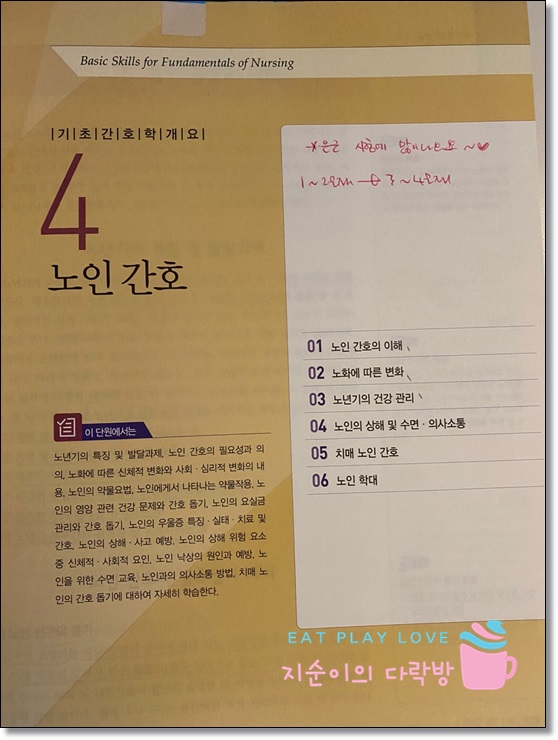 Basic Skills for Fundamentals of Nursing
|기|초|간|호|학|개|요|
4
노인 간호
1~2문제 → 3~4문제
01 노인 간호의 이해
02 노화에 따른 변화
03 노년기의 건강 관리
04 노인의 상해 및 수면·의사소통
05 치매 노인 간호
06 노인 학대
이 단원에서는
노년기의 특징 및 발달과제, 노인 간호의 필요성과 의
의, 노화에 따른 신체적 변화와 사회·심리적 변화의 내
용, 노인의 약물요법, 노인에게서 나타나는 약물작용, 노
인의 영양 관련 건강 문제와 간호 돕기, 노인의 요실금
관리와 간호 돕기, 노인의 우울증 특징·실태·치료 및
간호, 노인의 상해·사고 예방, 노인의 상해 위험 요소
중 신체적·사회적 요인, 노인 낙상의 원인과 예방, 노
인을 위한 수면 교육, 노인과의 의사소통 방법, 치매 노
인의 간호 돕기에 대하여 자세히 학습한다.
EAT PLAY LOVE
지순이의 다락방